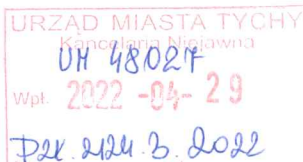 URZĄD MIASTA TYCHY
Kancelaria Niejawna
UM 48027
Wpł. 2022 -04- 29
DZK. 2124.3.2022